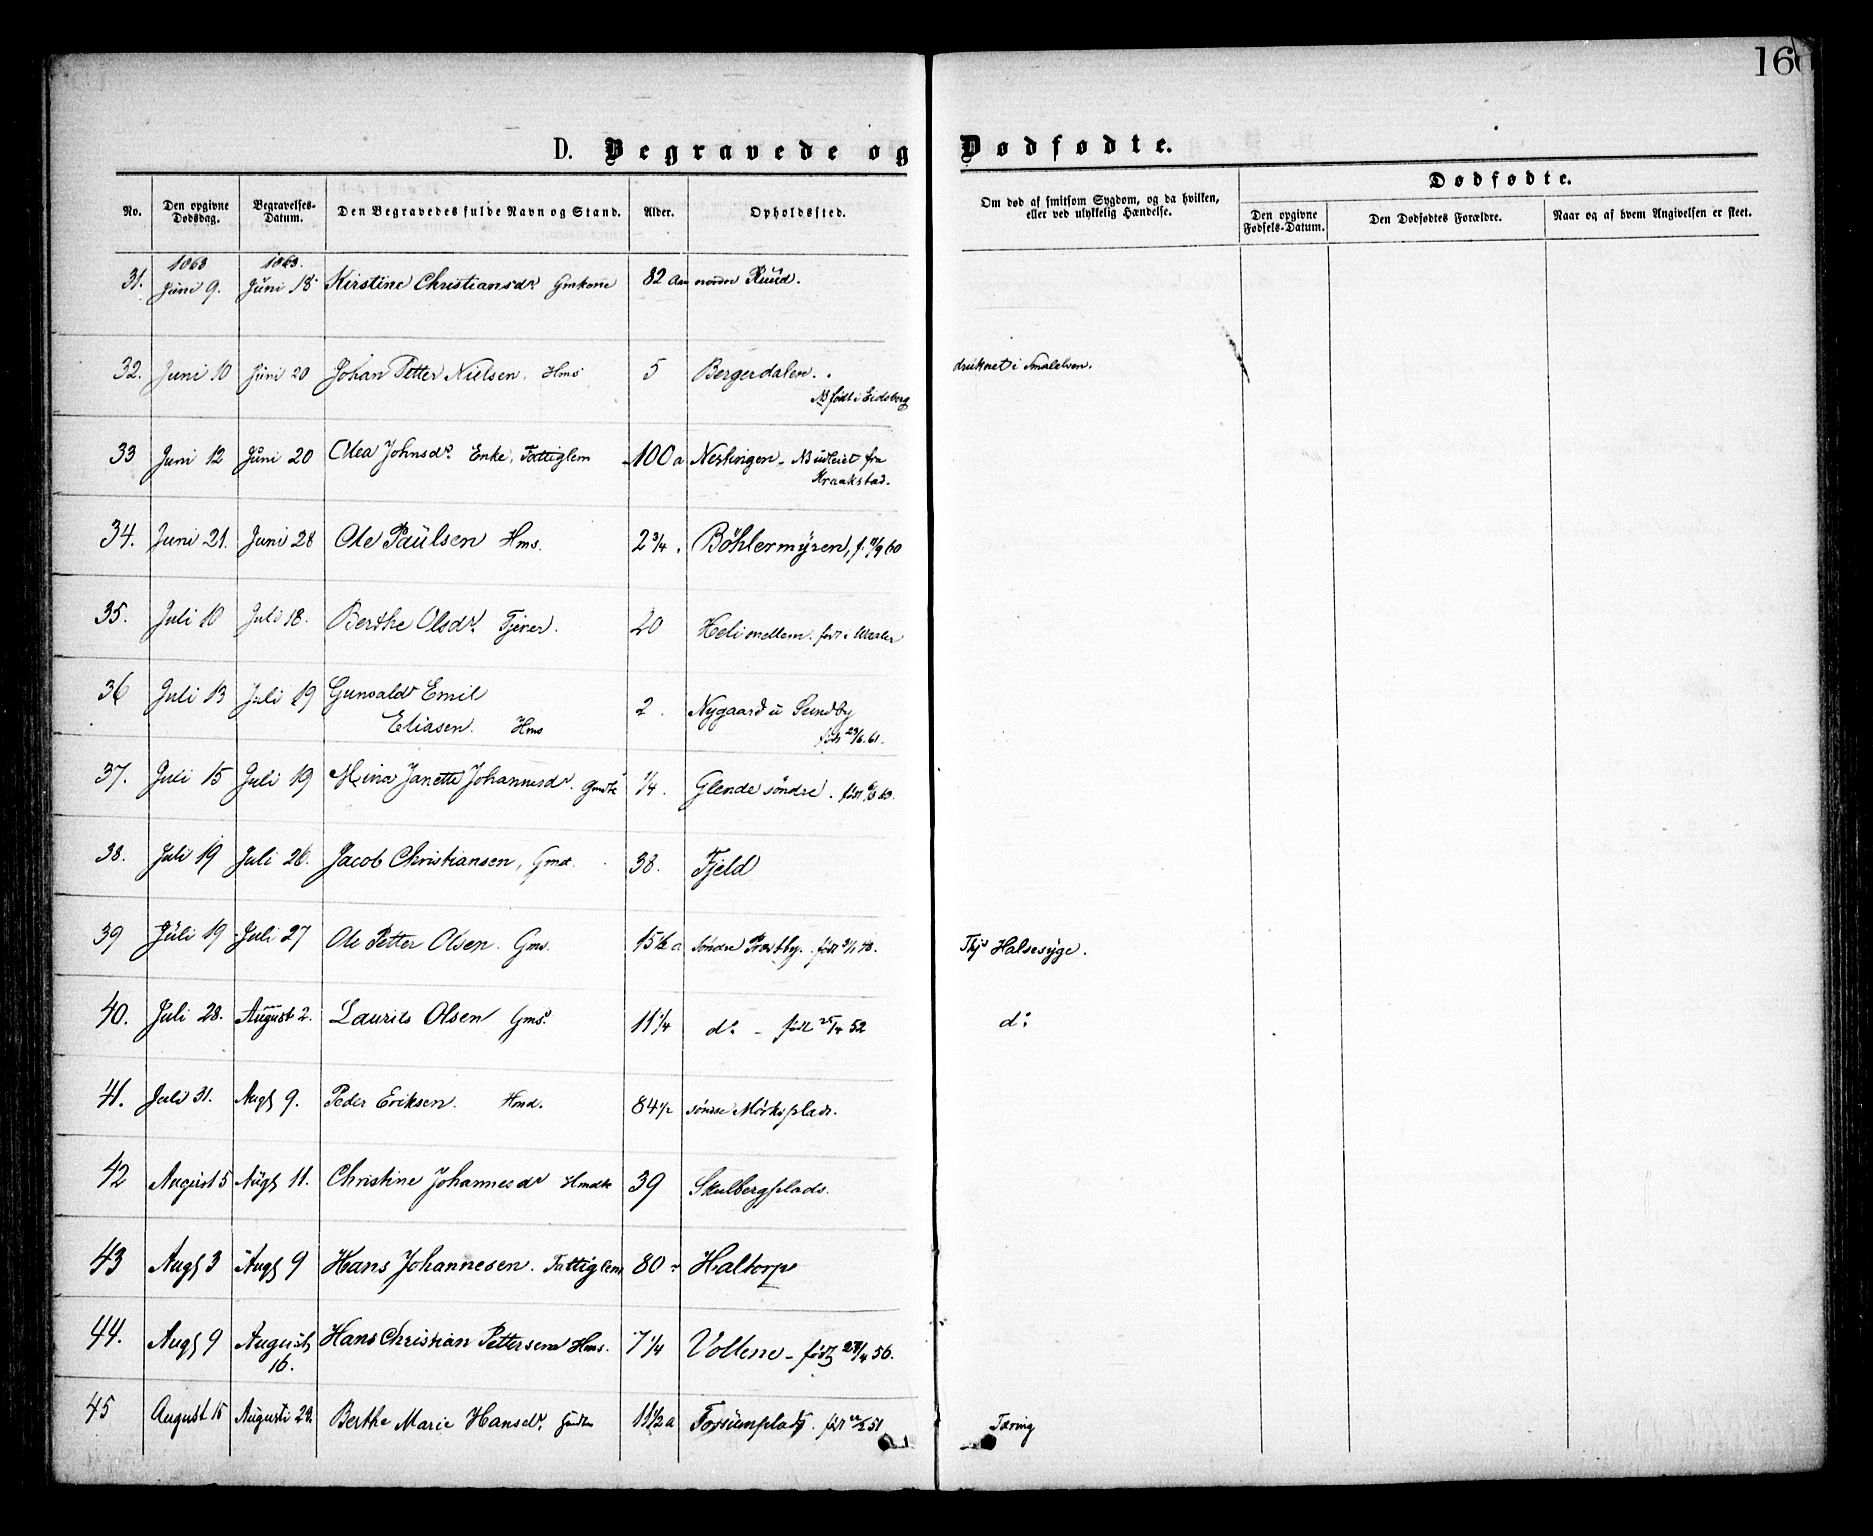 160
D. Begravede og Dødfødte.
No. Den opgivne Dødsdag. Begravelses-Datum. Den Begravedes fulde Navn og Stand. Alder. Opholdssted. Om død af smitsom Sygdom, og da hvilken, eller ved ulykkelig Hændelse. Dødfødte.
Den opgivne Fødsels-Datum. Den Dødfødtes Forældre. Naar og af hvem Angivelsen er skeet.
1863 1863.
31. Juni 9. Juni 18 Kirstine Christiansdr Gmkone 82 Aar nordre Ruud.
32. Juni 10 Juni 20 Johan Petter Nielsen. Hms 5 Bergerdalen. druknet i Smalelven.
NB født i Eidsberg
33 Juni 12 Juni 20 Olea Johnsdr. Enke, Fattiglem 100 a Neskingen - NB udleiet fra
Kraakstad.
34. Juni 21. Juni 28 Ole Paulsen Hms. 2 3/4. Böhlermyren, f. 11/9 60
35. Juli 10 Juli 18. Berthe Olsdr. Tjener. 20 Heli mellem. født i Vaaler
36 Juli 13 Juli 19 Gunvald Emil
Eliasen. Hms 2. Nygaard u Sundby
født 29/6. 61.
37. Juli 15 Juli 19 Mina Janette Johannesdr. Gmdtr 1/4. Glende söndre. født
38. Juli 19 Juli 26. Jacob Christiansen, Gmd. 38. Fjeld
39 Juli 19 Juli 27 Ole Petter Olsen. Gms. 15 1/2 a söndre Præstby. født 3/1 48. Halsesyge.
40. Juli 28. August 2. Laurits Olsen Gms. 11 1/4 do - født 25/4 52 do
41. Juli 31. Augt 9. Peder Eriksen. Hmd. 84 1/2 søndre Mörksplads.
42 August 5 Augt 11. Christine Johannesdr Hmdtr 39 Skulbergplads.
43 Augt 3 Augt 9 Hans Johannesen. Fattiglem 80 Haltorp
44. Augt 9 August
16. Hans Christian Pettersen Hms. 7 1/4 Vollene - født 28/4 56.
45 August 15 August 23. Berthe Marie Hansdr. 11 1/2 a Fossumplads. født 51 Tæring